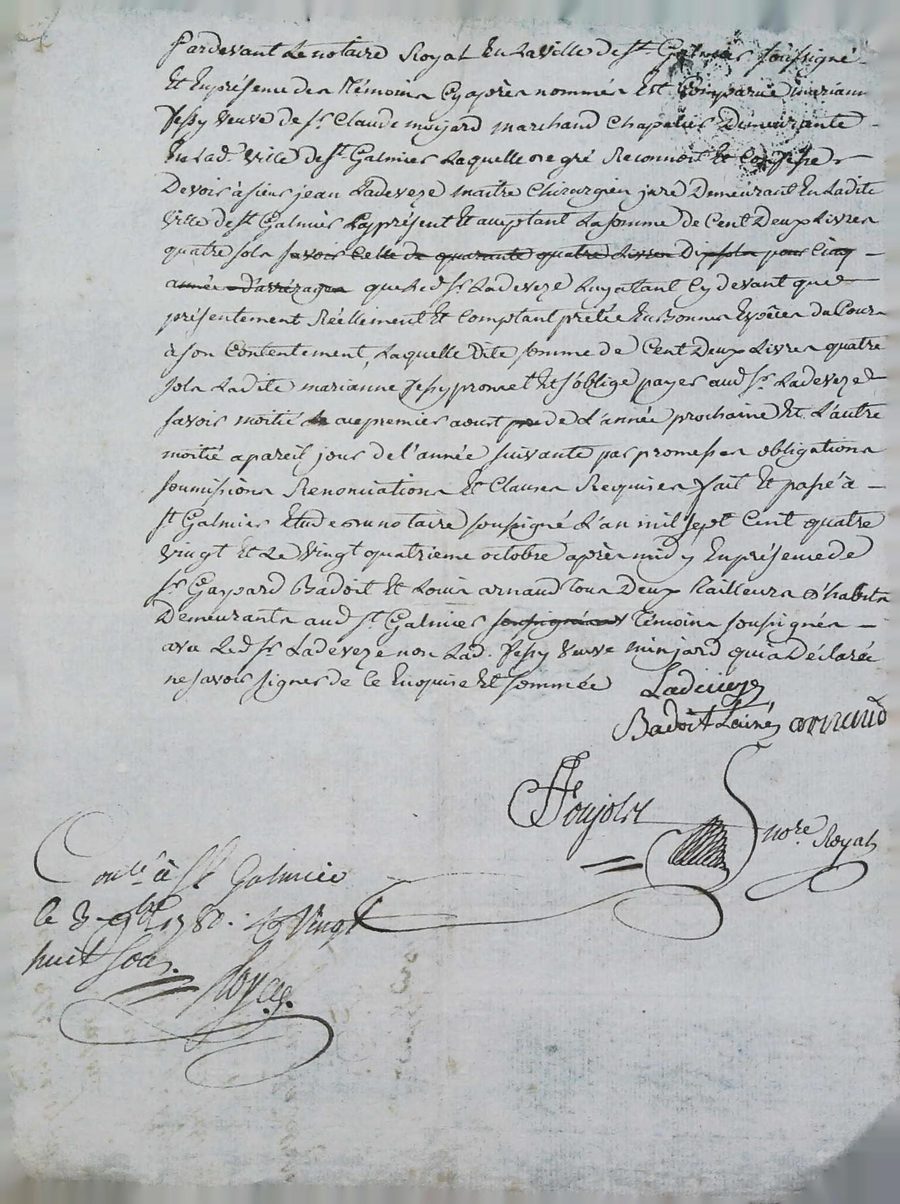 Pardevant Le notaire Royal En La ville de st Galmier soussigné
Et En présence des Témoins Cy après nommés Est Comparüe mariann
Jessy veuve de sr. Claude monjard marchand Chapelier Demeurante
En lad. ville de st. Galmier Laquelle de gré Reconnoit Et Confesse
Devoir à sieur jean Ladeveze maitre Chirurgien juré Demeurant En Ladite
ville de st. Galmier Cy présent Et acceptant La somme de Cent Deux Livres
quatre sols savoir Celle de quarante quatre Livres Dix sols pour Cinq
année d'arrérages que Led. sr. Ladeveze Luy a tant Cy devant que
présentement Réellement Et Comptant prêtée En Bonnes Espèces du Cours
à son Contentement, Laquelle dite somme de Cent Deux Livres quatre
sols Ladite marianne Jessy promet Et s'oblige payer aud. sr. Ladeveze
savoir moitié au premier aoust de L'année prochaine Et L'autre
moitié a pareil jour de l'année suivante par promesses obligations
soumissions Renonciations Et Clauses Requises fait Et passé à
st Galmier Etude du notaire soussigné L'an mil sept Cent quatre
vingt Et Le vingt quatrieme octobre après midy En présence de
sr. Gaspard Badoit Et Louis arnaud tous Deux Tailleurs d'habits
Demeurants aud. st. Galmier soussignés Témoins soussignés
avec Led. sr. Ladeveze non Lad. Jessy veuve monjard qui a Déclaré
ne savoir signer de Ce Enquise Et sommée Ladeveze
Badoit Lainé arnaud
Poujols nore. Royal
Conlé. à St Galmier
le 3 9bre 1780. Vingt
huit sous.